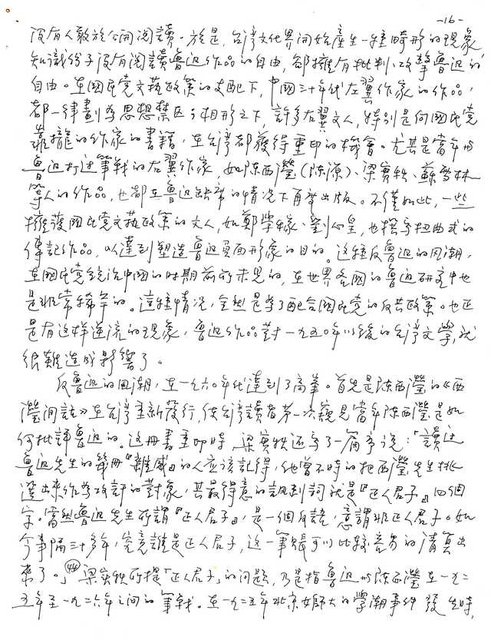 -16-
沒有人敢於公開閱讀。於是，台灣文化界開始產生一種畸形的現象
知識份子沒有閱讀魯迅作品的自由，卻擁有批判、攻擊魯迅的
自由。在國民党文藝政策的支配下，中國三十年代左翼作家的作品，
都一律劃為思想禁区；相形之下，許多右翼文人，特別是向國民党
靠攏的作家的書籍，在台灣都獲得重印的機會。尤其是當年与
魯迅打过筆戰的右翼作家，如陳西瀅（陳源）、梁實秋、蘇雪林
等人的作品，也都在魯迅缺席的情況下再度出版。不僅如此，一些
擁護國民党文藝政策的文人，如鄭學稼、劉心皇，也撰寫扭曲式的
傳記作品，以達到塑造魯迅負面形象的目的。这種反魯迅的風潮，
在國民党統治中國的时期前所未見的，在世界各國的魯迅研究中也
是非常稀罕的。這種情況，全然是為了配合國民党的反共政策。也正
是有这样逆流的現象，魯迅作品對一九五〇年以後的台湾文學就
很難造成影響了。
反魯迅的風潮，在一九六〇年代達到了高峯。首先是陳西瀅的《西
瀅閒話》在台灣重新發行，使台灣讀者第一次窺見當年陳西瀅是如
何批評魯迅的。这冊書重印時，梁實秋还寫了一篇序說：「讀过
魯迅先生的
的人應該記得，他當不時的把西瀅先生挑
選出來作為攻訐的對象，其最得意的諷刺詞就是『正人君子』四個
字。當然魯迅先生所謂『正人君子』，是一個反語，意謂非正人君子。如
今事隔三十多年，究竟誰是正人君子，这一筆賬可以比較容易的清算出
來了。」梁實秋所提『正人君子』的問題，乃是指魯迅與陳西瀅在一九二
五年至一九二六年之间的筆戰。在一九二五年北京女師大的學潮事件發生時，